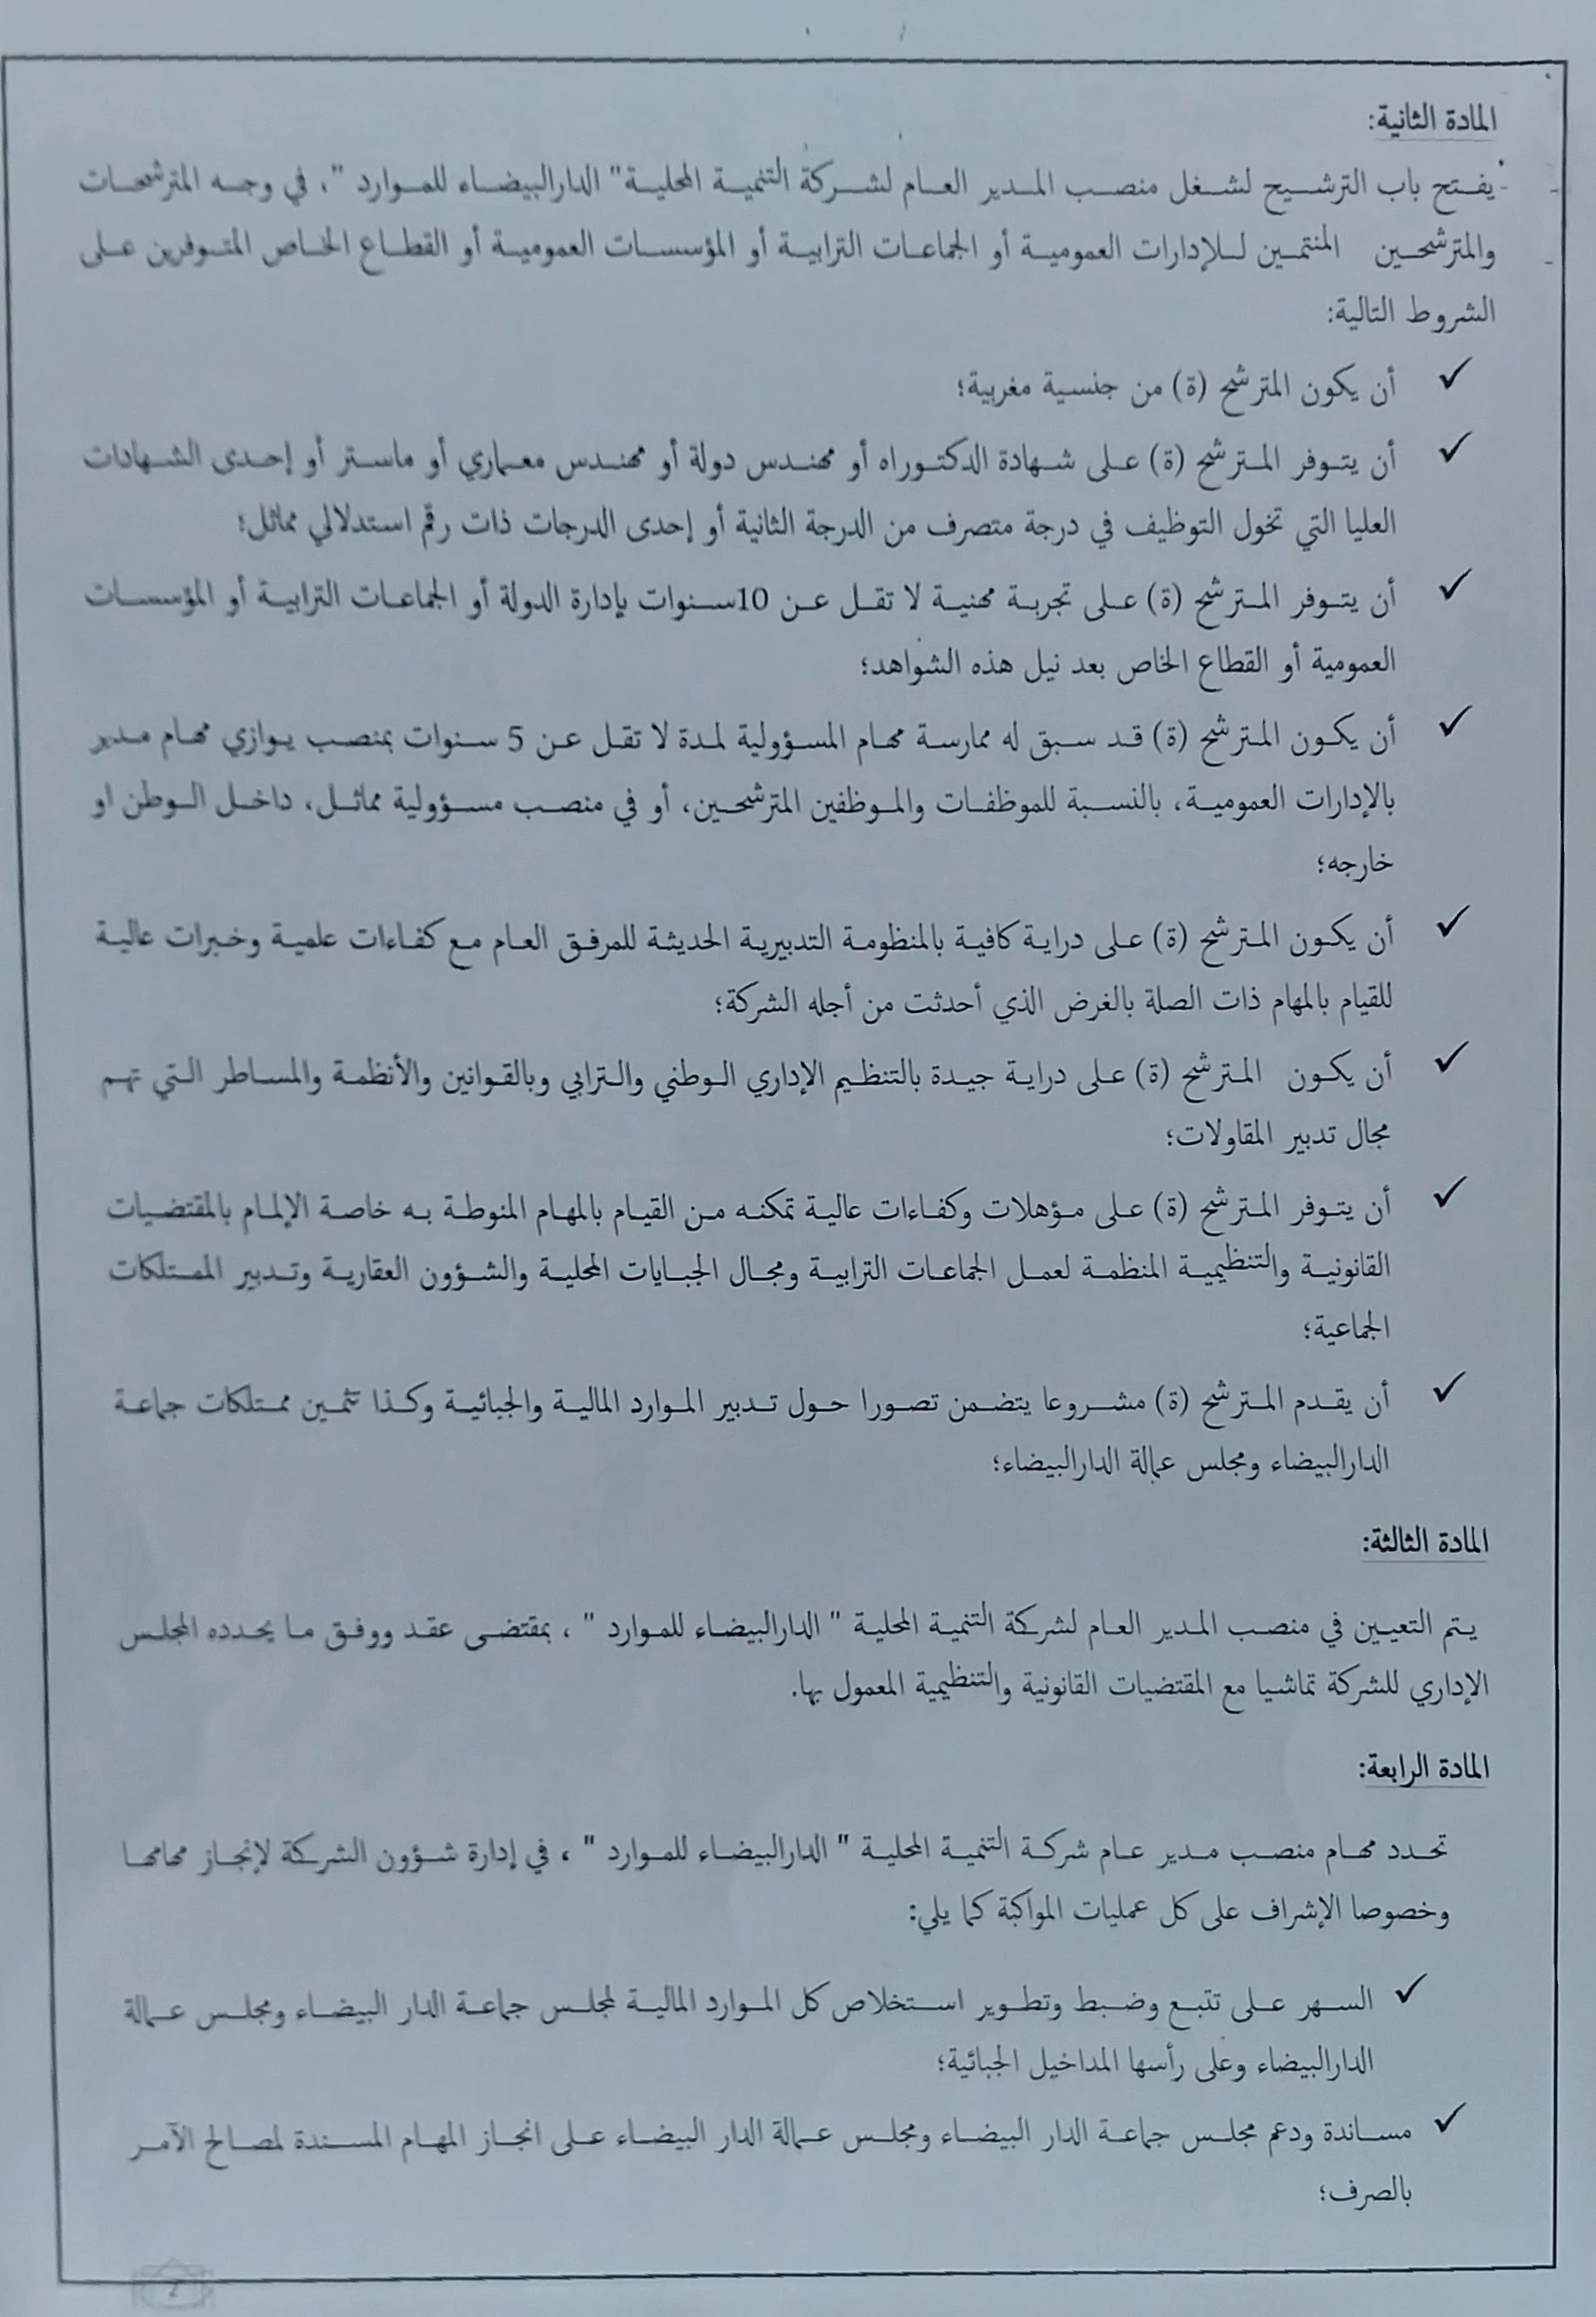 المادة الثانية:
يفتح باب الترشيح لشغل منصب المدير العام لشركة التنمية المحلية" الدارالبيضاء للموارد "، في وجه المترشحات
والمترشحين المنتمين للإدارات العمومية أو الجماعات الترابية أو المؤسسات العمومية أو القطاع الخاص المتوفرين على
الشروط التالية:
✓ أن يكون المترشح (ة) من جنسية مغربية؛
✓ أن يتوفر المترشح (ة) على شهادة الدكتوراه أو مهندس دولة أو مهندس معماري أو ماستر أو إحدى الشهادات
العليا التي تخول التوظيف في درجة متصرف من الدرجة الثانية أو إحدى الدرجات ذات رقم استدلالي مماثل؛
✓ أن يتوفر المترشح (ة) على تجربة مهنية لا تقل عن 10سنوات بإدارة الدولة أو الجماعات الترابية أو المؤسسات
العمومية أو القطاع الخاص بعد نيل هذه الشواهد؛
✓ أن يكون المترشح (ة) قد سبق له ممارسة مهام المسؤولية لمدة لا تقل عن 5 سنوات بمنصب يوازي مهام مدير
بالإدارات العمومية، بالنسبة للموظفات والموظفين المترشحين، أو في منصب مسؤولية مماثل، داخل الوطن او
خارجه؛
✓ أن يكون المترشح (ة) على دراية كافية بالمنظومة التدبيرية الحديثة للمرفق العام مع كفاءات علمية وخبرات عالية
للقيام بالمهام ذات الصلة بالغرض الذي أحدثت من أجله الشركة؛
✓ أن يكون المترشح (ة) على دراية جيدة بالتنظيم الإداري الوطني والترابي وبالقوانين والأنظمة والمساطر التي تهم
مجال تدبير المقاولات؛
✓ أن يتوفر المترشح (ة) على مؤهلات وكفاءات عالية تمكنه من القيام بالمهام المنوطة به خاصة الإلمام بالمقتضيات
القانونية والتنظيمية المنظمة لعمل الجماعات الترابية ومجال الجبايات المحلية والشؤون العقارية وتدبير الممتلكات
الجماعية؛
✓ أن يقدم المترشح (ة) مشروعا يتضمن تصورا حول تدبير الموارد المالية والجبائية وكذا تثمين ممتلكات جماعة
الدارالبيضاء ومجلس عمالة الدارالبيضاء؛
المادة الثالثة:
يتم التعيين في منصب المدير العام لشركة التنمية المحلية " الدارالبيضاء للموارد " ، بمقتضى عقد ووفق ما يحدده المجلس
الإداري للشركة تماشيا مع المقتضيات القانونية والتنظيمية المعمول بها.
المادة الرابعة:
تحدد مهام منصب مدير عام شركة التنمية المحلية " الدارالبيضاء للموارد " ، في إدارة شؤون الشركة لإنجاز مهامها
وخصوصا الإشراف على كل عمليات المواكبة كما يلي:
✓ السهر على تتبع وضبط وتطوير استخلاص كل الموارد المالية لمجلس جماعة الدار البيضاء ومجلس عمالة
الدارالبيضاء وعلى رأسها المداخيل الجبائية؛
✓ مساندة ودعم مجلس جماعة الدار البيضاء ومجلس عمالة الدار البيضاء على انجاز المهام المسندة لمصالح الآمر
بالصرف؛
2